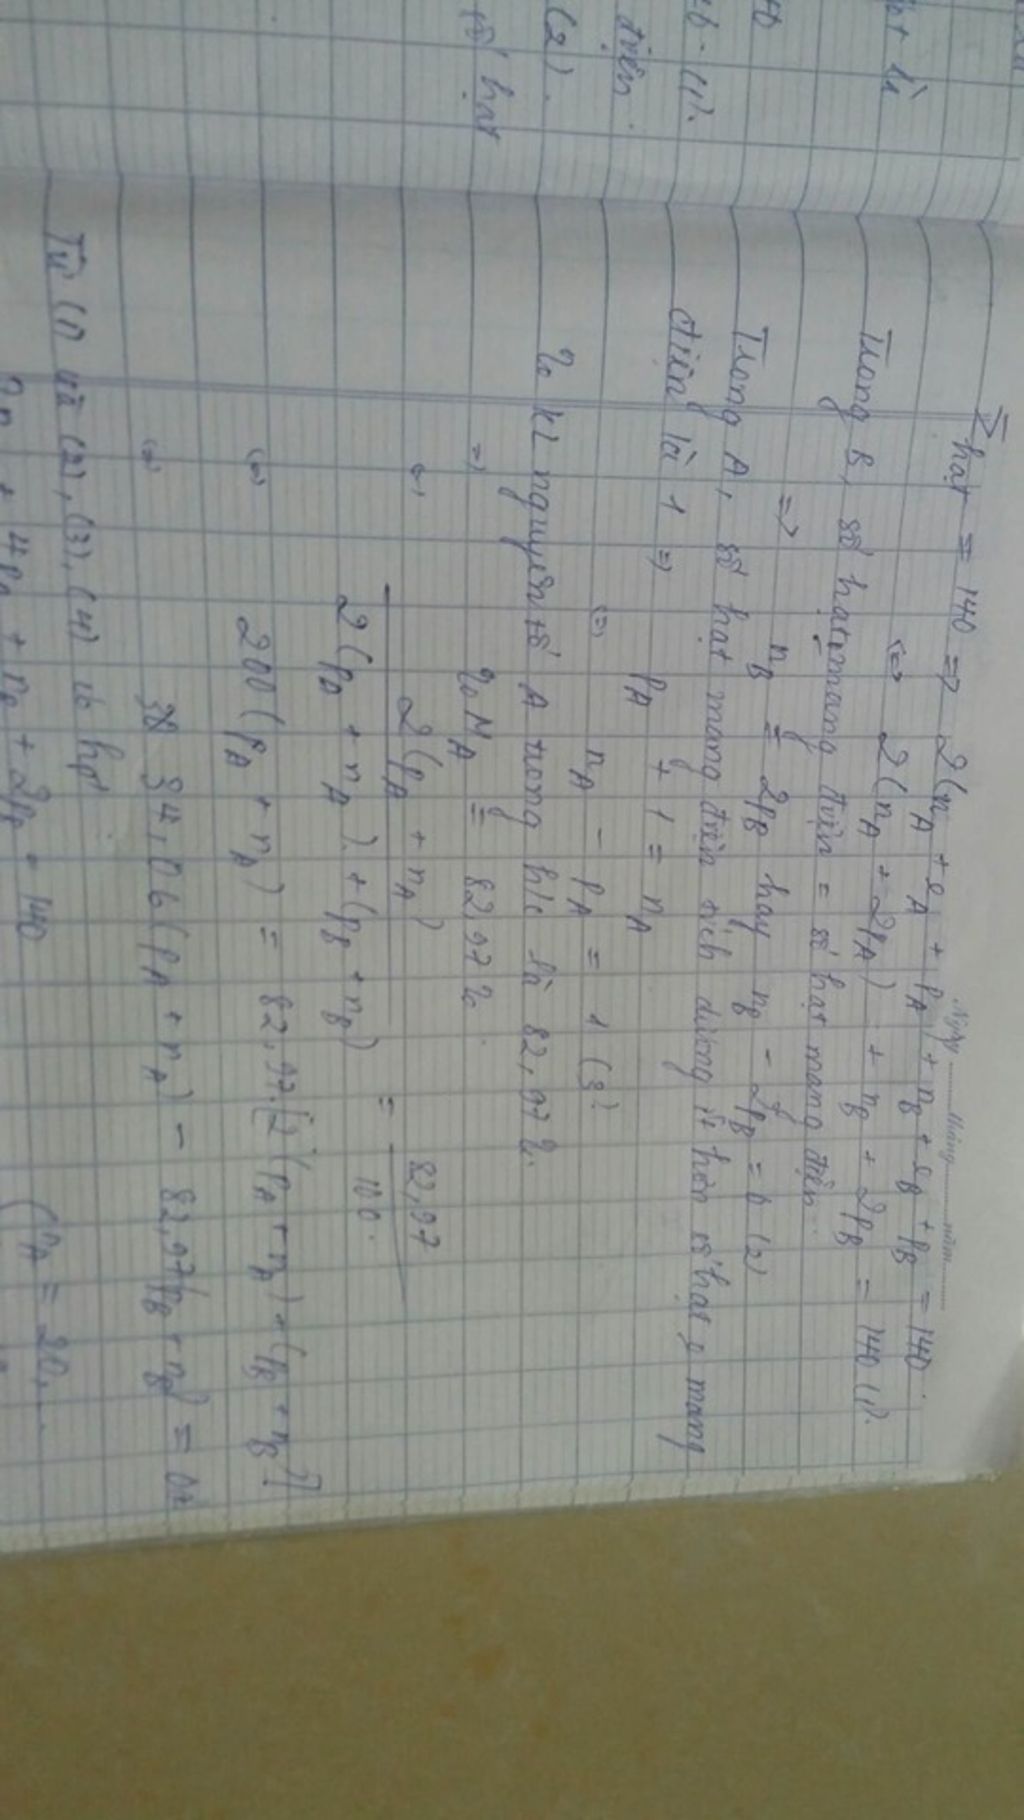 Ngày ......... tháng ......... năm .........
∑hạt = 140 => 2(nA + eA + pA + nB + eB + pB = 140.
<=> 2(nA + 2pA) + nB + 2pB = 140 (1).
Trong B, số hạt mang điện = số hạt mang điện.
=> nB = 2pB hay nB - 2pB = 0 (2)
Trong A, số hạt mang điện tích dương ít hơn số hạt o mang
điện là 1 => pA + 1 = nA
<=> nA - pA = 1 (3)
% KL nguyên tố A trong h/c là 82,97%.
=> %MA = 82,97%.
<=> 2(pA + nA) / 2(pA + nA) + (pB + nB) = 82,97 / 100.
<=> 200(pA + nA) = 82,97.[2(pA + nA) + (pB + nB)]
<=> 34,06(pA + nA) - 82,97(pB + nB) = 0
Từ (1) và (2), (3), (4) ta hpt
2nA + 4pA + nB + 2pB = 140
pA = 20
pt là
(1).
điện.
(2).
số hạt